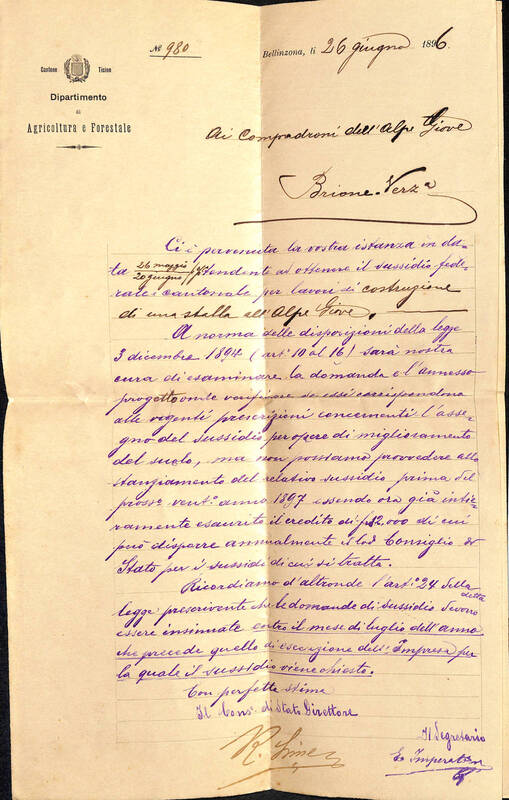 Nº 980
Bellinzona, li 26 giugno 1896.
Cantone Ticino
Dipartimento
di
Agricoltura e Forestale
Ai Compadroni dell'Alpe Giove
Brione-Verzª
Ci è pervenuta la vostra istanza in da-
ta 26 maggio / 20 giugno tendente ad ottenere il sussidio fede-
rale e cantonale per lavori di costruzione
di una stalla all'Alpe Giove.
A norma delle disposizioni della legge
3 dicembre 1894 (artⁱ 10 al 16) sarà nostra
cura di esaminare la domanda e l'annesso
progetto onde verificare se essi corrispondono
alle vigenti prescrizioni concernenti l'asse-
gno del sussidio per opere di miglioramento
del suolo, ma non possiamo provvedere allo
stanziamento del relativo sussidio prima del
pross.º vent.º anno 1897 essendo ora già intie-
ramente esaurito il credito di fr 12,000 di cui
può disporre annualmente il lod. Consiglio di
Stato per il sussidio di cui si tratta.
Ricordiamo d'altronde l'artº 24 della detta
legge prescrivente che le domande di sussidio devono
essere insinuate entro il mese di luglio dell'anno
che precede quello di esecuzione dell'Impresa per
la quale il sussidio viene chiesto.
Con perfetta stima
Il Consº di Stato Direttore
Il Segretario
R.
E.